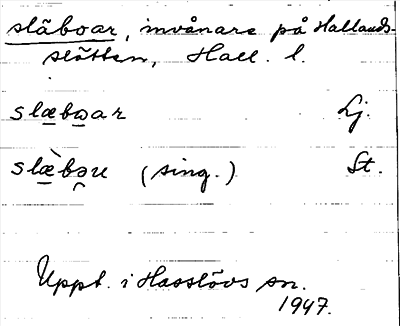 släboar, invånare på Hallands-
slätten, Hall. l.
slæboar Lj.
slæ̀bəu (sing.) St.
Uppt. i Hasslövs sn.
1947.